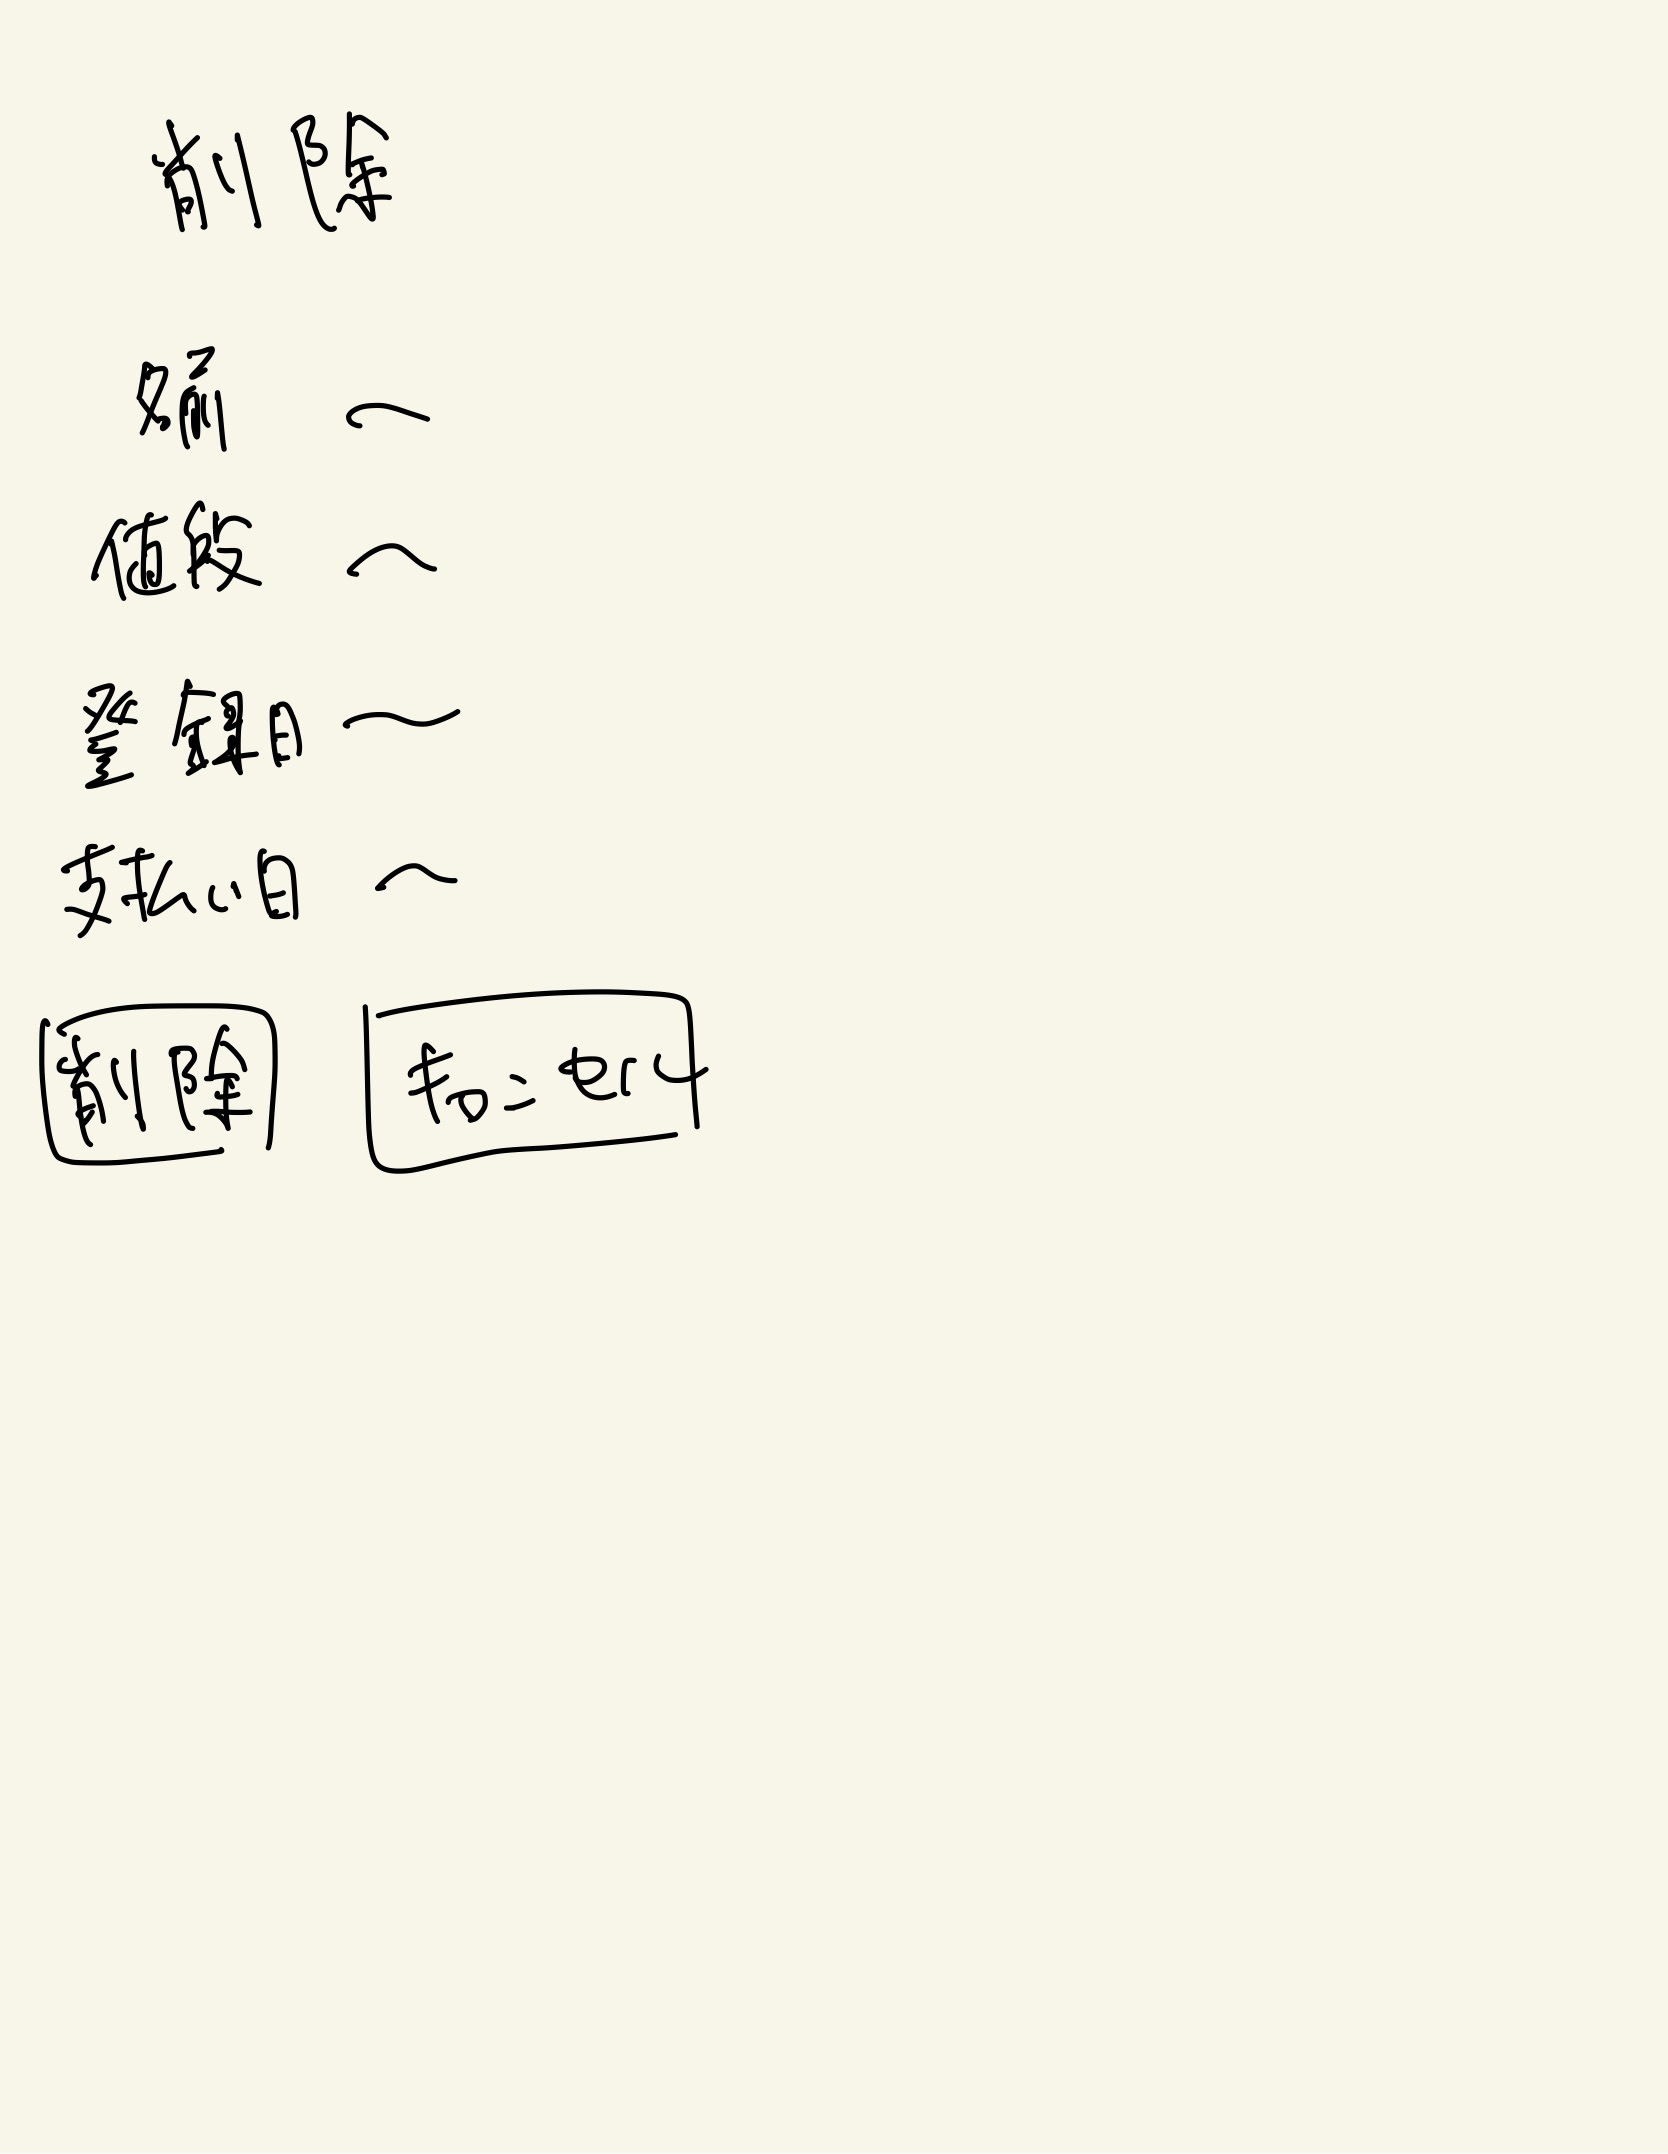 削除
名前 〜
値段 〜
登録日 〜
支払い日 〜
削除 キャンセル